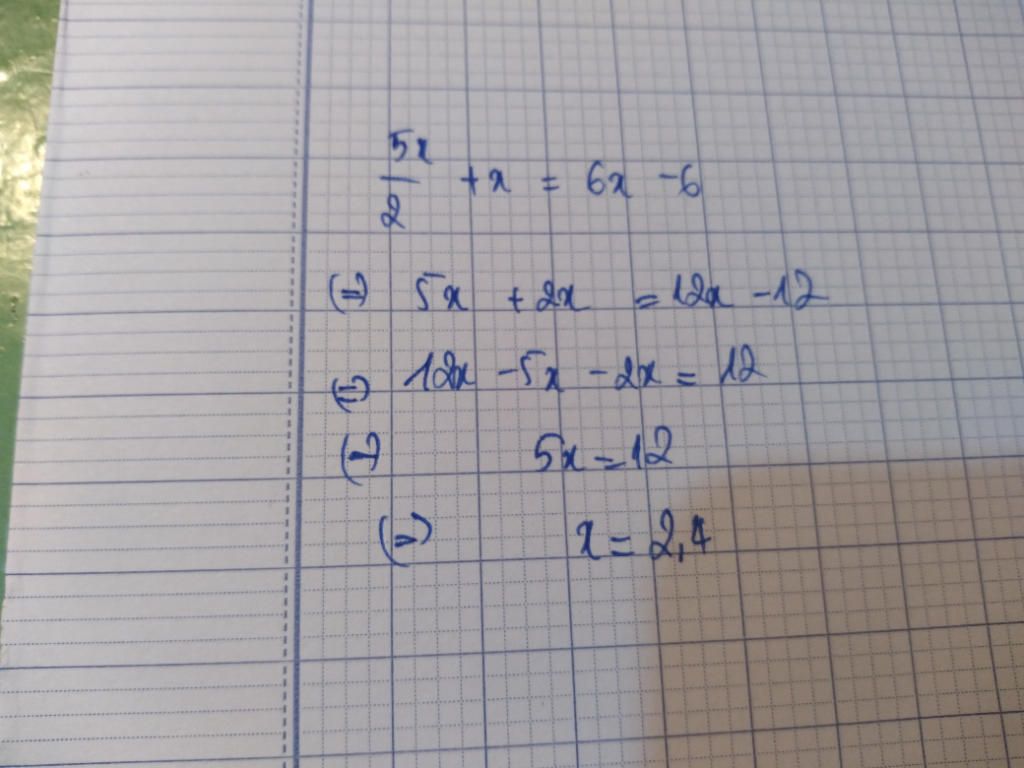 5x/2 + x = 6x - 6
(=) 5x + 2x = 12x - 12
(=) 12x - 5x - 2x = 12
(=) 5x = 12
(=) x = 2,4